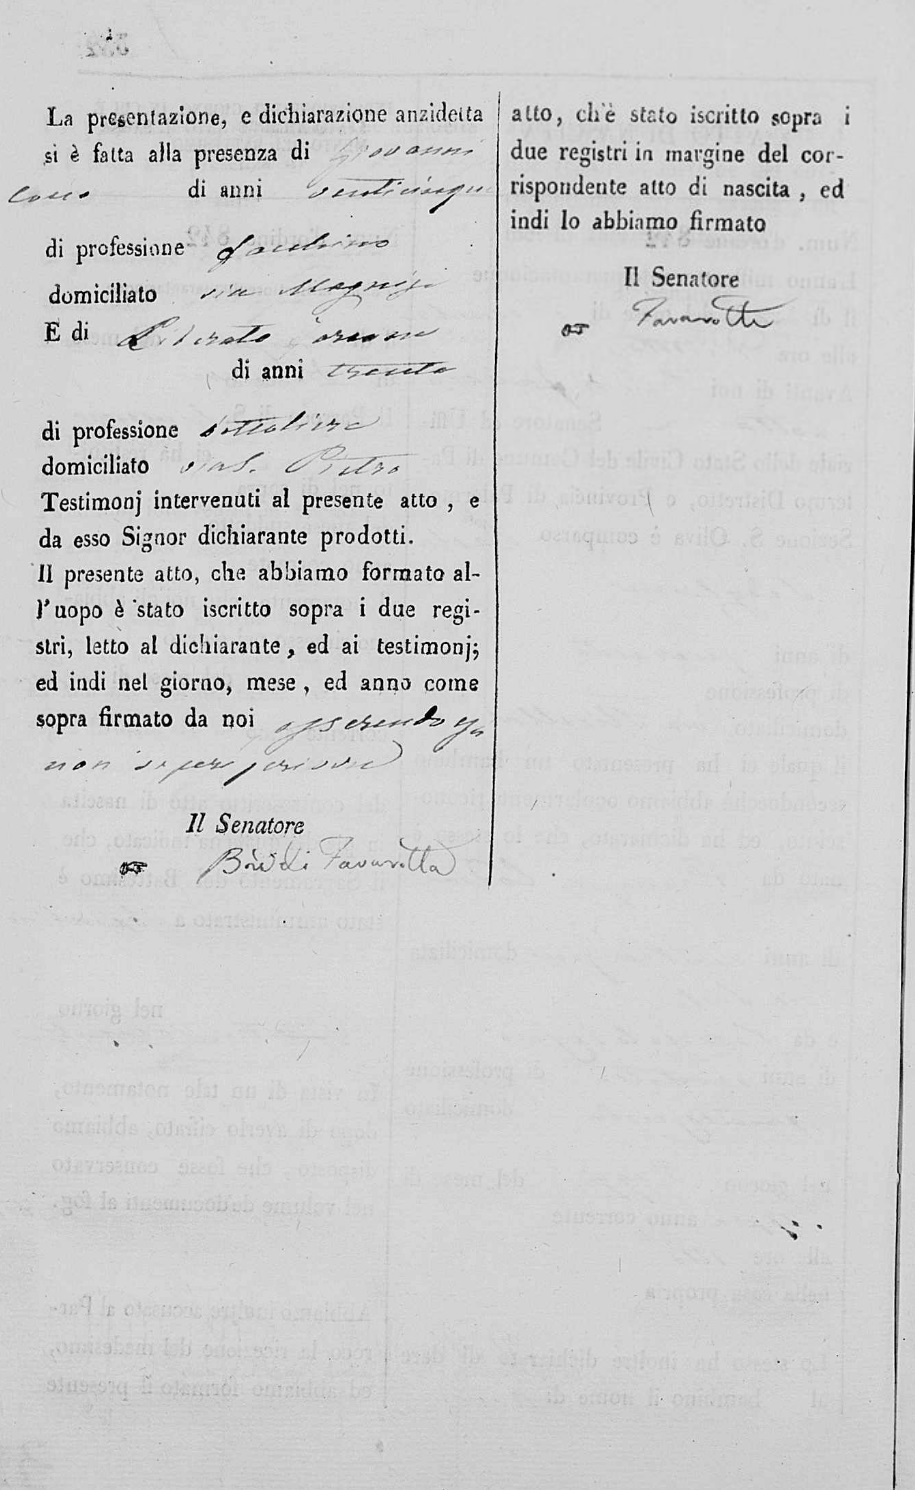 La presentazione, e dichiarazione anzidetta
si è fatta alla presenza di Giovanni
di anni venticinque
di professione
domiciliato via
E di Liberato
di anni trenta
di professione
domiciliato via S. Pietro
Testimonj intervenuti al presente atto, e
da esso Signor dichiarante prodotti.
Il presente atto, che abbiamo formato al-
l'uopo è stato iscritto sopra i due regi-
stri, letto al dichiarante, ed ai testimonj;
ed indi nel giorno, mese, ed anno come
sopra firmato da noi asserendo
non saper scrivere
Il Senatore
Favarotta
atto, ch'è stato iscritto sopra i
due registri in margine del cor-
rispondente atto di nascita, ed
indi lo abbiamo firmato
Il Senatore
Favarotta